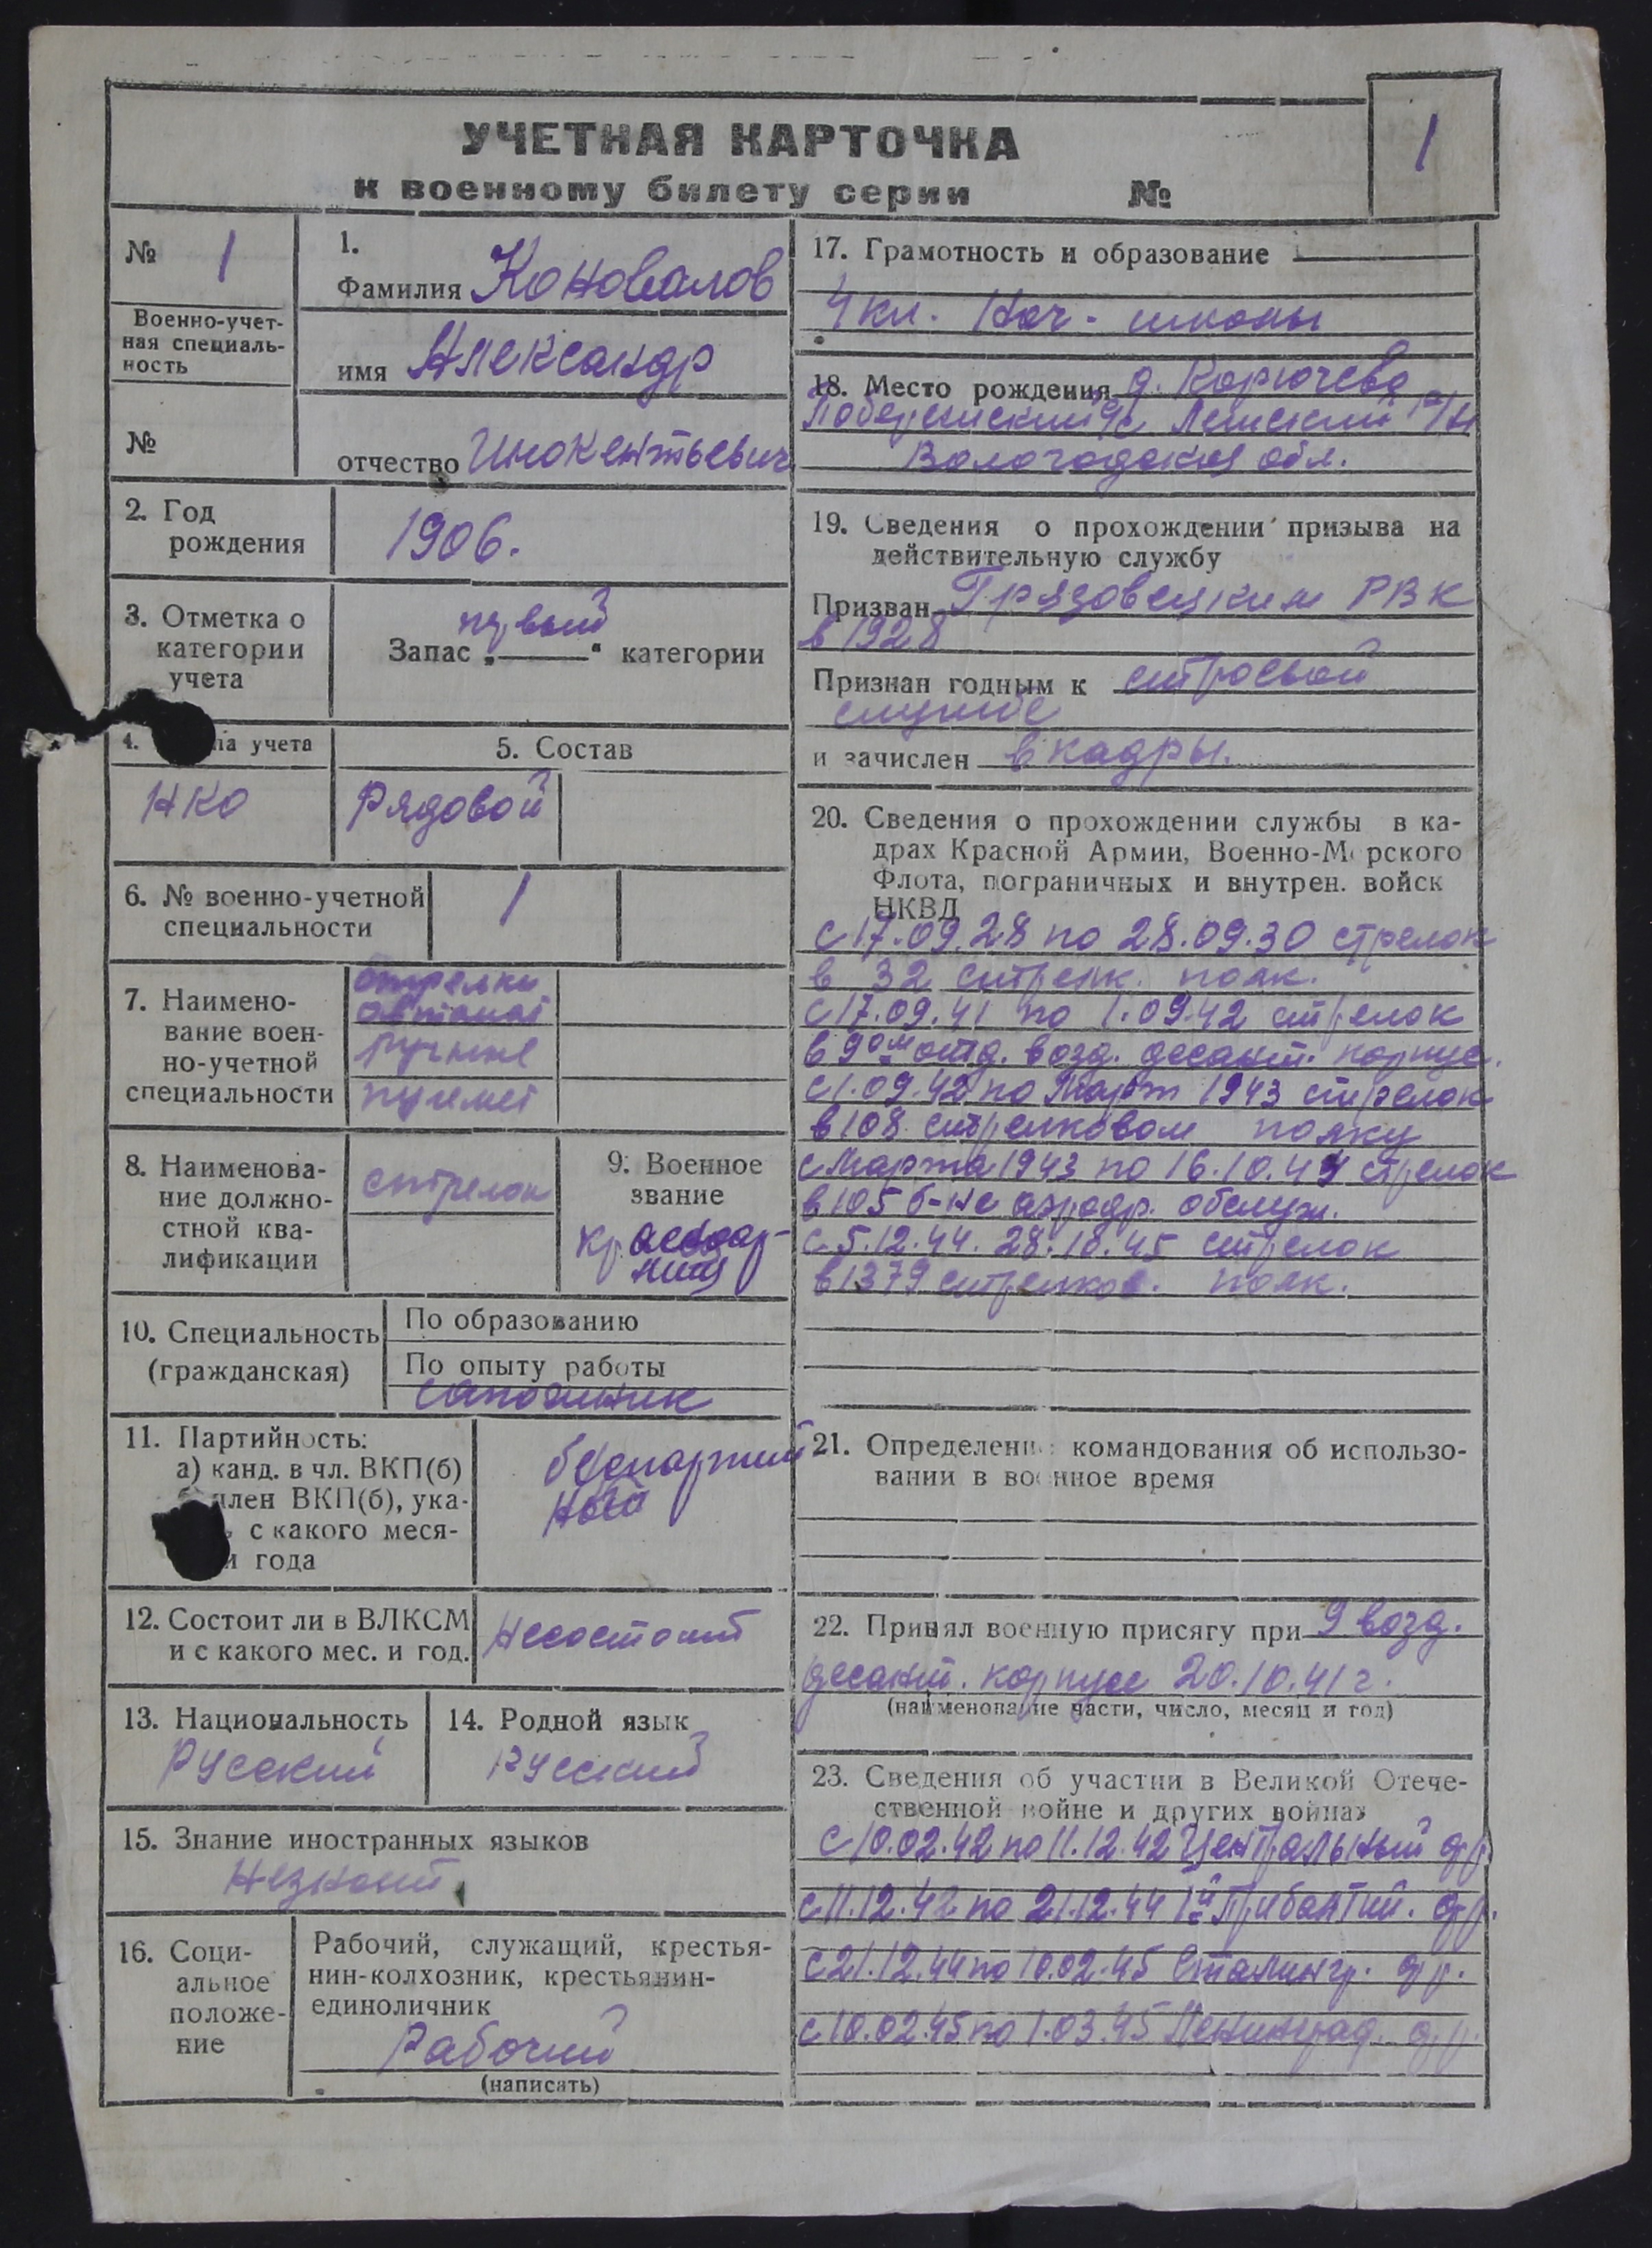 УЧЕТНАЯ КАРТОЧКА
к военному билету серии №
1
№ 1
Военно-учет-
ная специаль-
ность
№
1.
Фамилия Коновалов
имя Александр
отчество Инокентьевич
2. Год
рождения
1906.
3. Отметка о
категории
учета
первый
Запас „ “ категории
4. па учета
НКО
5. Состав
Рядовой
6. № военно-учетной
специальности
1
7. Наимено-
вание воен-
но-учетной
специальности
Стрелки
автомат
ручные
пулемет
8. Наименова-
ние должно-
стной ква-
лификации
стрелок
9. Военное
звание
красноар-
меец
10. Специальность
(гражданская)
По образованию
По опыту работы
сапожник
11. Партийность:
а) канд. в чл. ВКП(б)
член ВКП(б), ука-
с какого меся-
и года
беспартий
ный
12. Состоит ли в ВЛКСМ
и с какого мес. и год.
Несостоит
13. Национальность
Русский
14. Родной язык
Русский
15. Знание иностранных языков
Незнает
16. Соци-
альное
положе-
ние
Рабочий, служащий, крестья-
нин-колхозник, крестьянин-
единоличник
Рабочий
(написать)
17. Грамотность и образование
4 кл. Нач. школы
18. Место рождения д. Корючево
с/с Лежский р/н
Вологодская обл.
19. Сведения о прохождении призыва на
действительную службу
Призван Грязовецким РВК
в 1928
Признан годным к строевой
службе
и зачислен в кадры.
20. Сведения о прохождении службы в ка-
драх Красной Армии, Военно-Морского
Флота, пограничных и внутрен. войск
НКВД
с 17.09.28 по 28.09.30 стрелок
в 32 стрелк. полк.
с 17.09.41 по 1.09.42 стрелок
в 9ом отд. возд. десант. корпус.
с 1.09.42 по Март 1943 стрелок
в 108 стрелковом полку
с Марта 1943 по 16.10.44 стрелок
в 105 б-не аэродр. обслуж.
с 5.12.44. 28.10.45 стрелок
в 1379 стрелков. полк.
21. Определение командования об использо-
вании в военное время
22. Принял военную присягу при 9 возд.
десант. корпусе 20.10.41 г.
(наименование части, число, месяц и год)
23. Сведения об участии в Великой Отече-
ственной войне и других войнах
с 10.02.42 по 11.12.42 Центральный фр.
с 11.12.42 по 21.12.44 1й Прибалтий. фр.
с 21.12.44 по 10.02.45 Сталингр. фр.
с 10.02.45 по 1.03.45 Ленинград. фр.